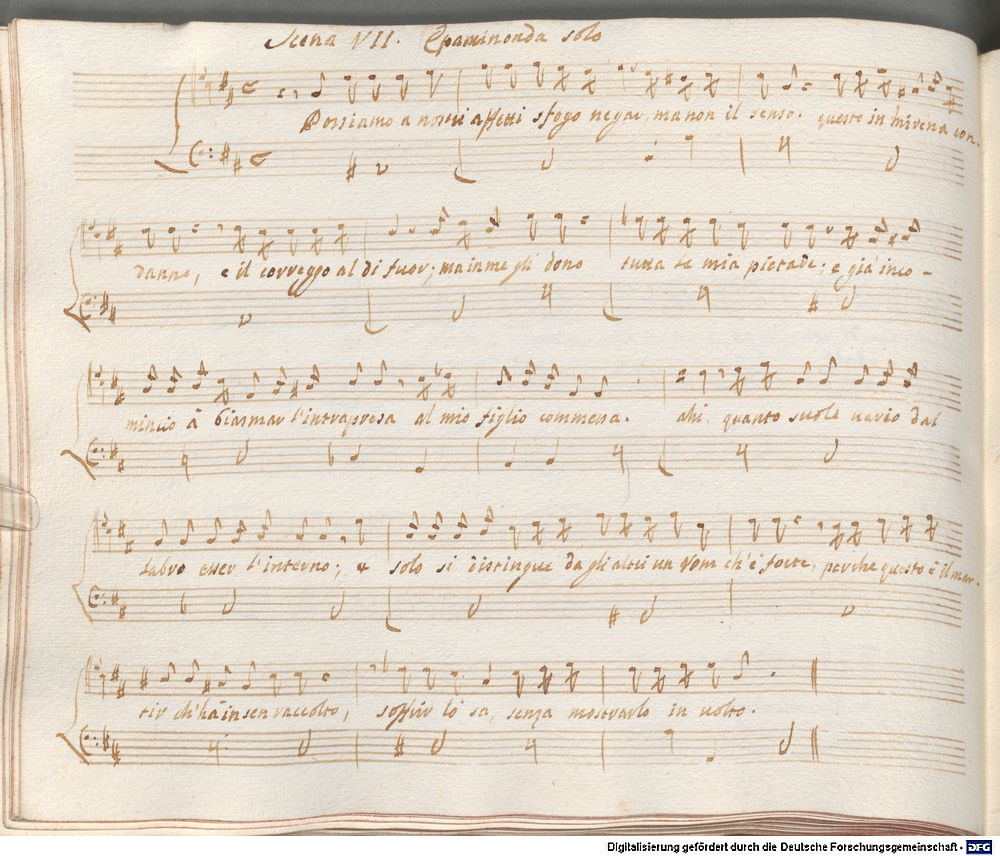 Scena VII. Epaminonda solo
Possiamo a nostri affetti sfogo negar, ma non il senso. questo in Mirena con-
danno, e il correggo al di fuor; ma in me gli dono tutta la mia pietade; e già inco-
mincio à biasmar l'intrapresa al mio figlio commessa. ahi, quanto suole vario dal
labro esser l'interno; e solo si distingue da gli altri un Uom ch'è forte, perche questo è il mar-
tir ch'hà in sen raccolto, soffrir lo sà, senza mostrarlo in volto.
Digitalisierung gefördert durch die Deutsche Forschungsgemeinschaft - DFG